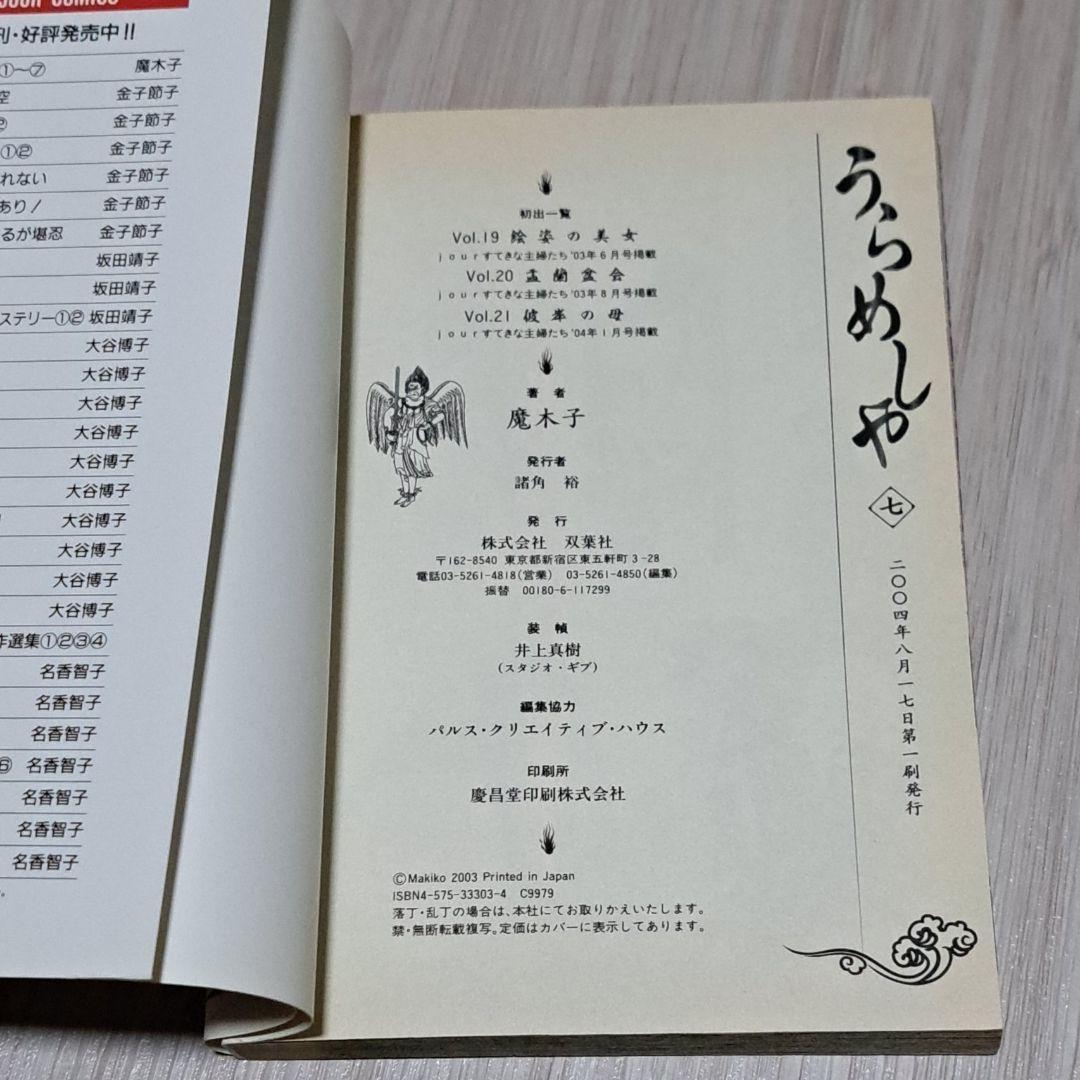 JOUR COMICS
刊・好評発売中!!
①〜⑦ 魔木子
空 金子節子
② 金子節子
①② 金子節子
れない 金子節子
あり! 金子節子
るが堪忍 金子節子
坂田靖子
坂田靖子
ステリー①② 坂田靖子
大谷博子
大谷博子
大谷博子
大谷博子
大谷博子
大谷博子
大谷博子
大谷博子
大谷博子
大谷博子
作選集①②③④
名香智子
名香智子
名香智子
⑥ 名香智子
名香智子
名香智子
名香智子
うらめしや
七
二〇〇四年八月一七日第一刷発行
初出一覧
Vol.19 絵姿の美女
jourすてきな主婦たち'03年6月号掲載
Vol.20 盂蘭盆会
jourすてきな主婦たち'03年8月号掲載
Vol.21 彼岸の母
jourすてきな主婦たち'04年1月号掲載
著者
魔木子
発行者
諸角 裕
発行
株式会社 双葉社
〒162-8540 東京都新宿区東五軒町3-28
電話03-5261-4818(営業) 03-5261-4850(編集)
振替 00180-6-117299
装幀
井上真樹
(スタジオ・ギブ)
編集協力
パルス・クリエイティブ・ハウス
印刷所
慶昌堂印刷株式会社
©Makiko 2003 Printed in Japan
ISBN4-575-33303-4 C9979
落丁・乱丁の場合は、本社にてお取りかえいたします。
禁・無断転載複写。定価はカバーに表示してあります。